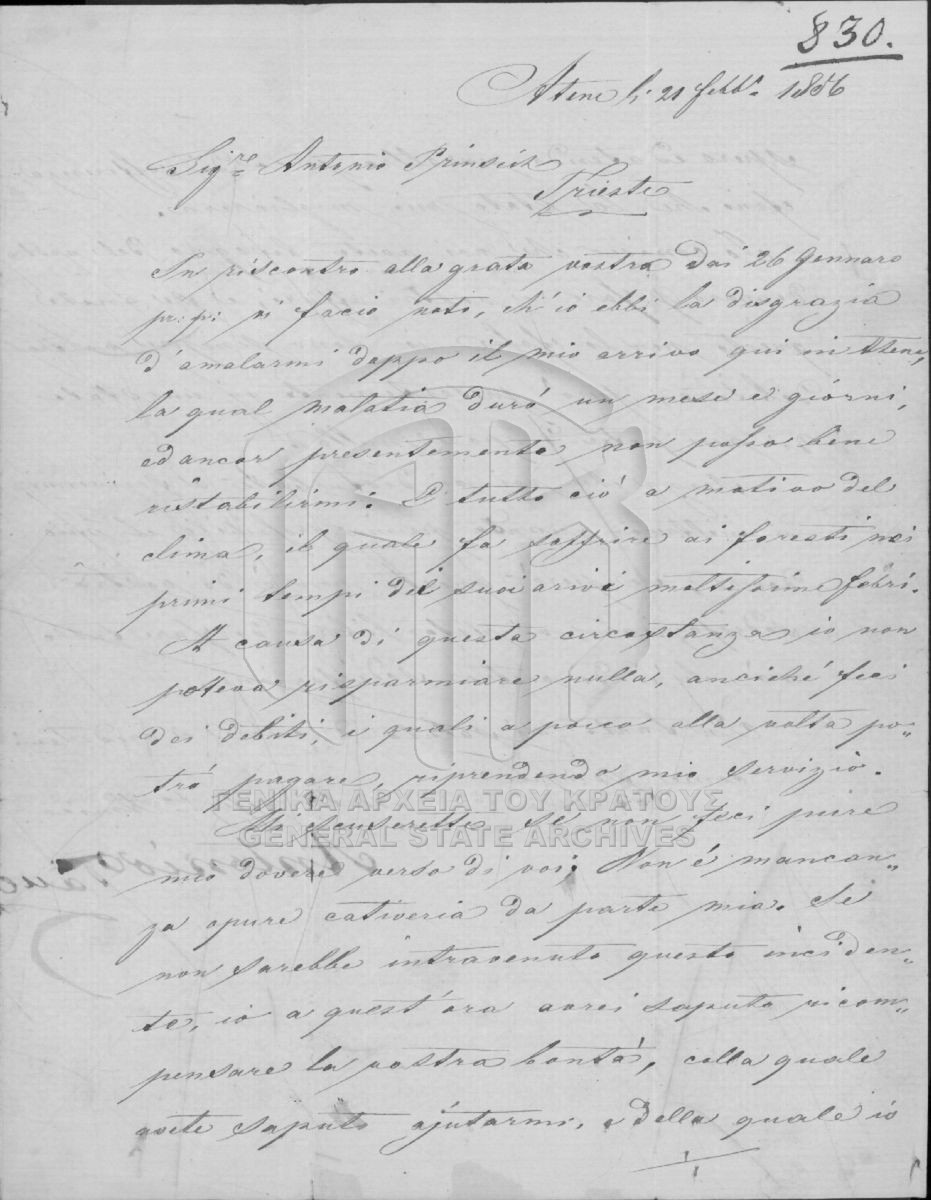 830.
Atene li 21 febb.º 1856
Sig.re Antonio Prinsich
Trieste
In riscontro alla grata vostra dei 26 Gennaro
pr: p: vi facio noto, ch'io ebbi la disgrazia
d'amalarmi doppo il mio arrivo qui in Atene,
la qual malatia duró un mese e giórni,
ed ancor presentemente non posso bene
ristabilirmi. E tutto ció a motivo del
clima, il quale fa soffrire ai foresti nei
primi tempi dei suoi arivi moltissime febri.
A causa di questa circostanza io non
poteva risparmiare nulla, anciché feci
dei debiti, i quali a poco alla volta po„
tró pagare, riprendendo mio servizio.
Mi scuserette se non feci pure
mio dovere verso di voi; Non é mancan„
za opure cativeria da parte mia. Se
non sarebbe intravenuto questo inciden„
te, io a quest'ora avrei saputo ricom„
pensare la vostra bontá, colla quale
avete saputo ajutarmi, e della quale io
ΓΕΝΙΚΑ ΑΡΧΕΙΑ ΤΟΥ ΚΡΑΤΟΥΣ
GENERAL STATE ARCHIVES